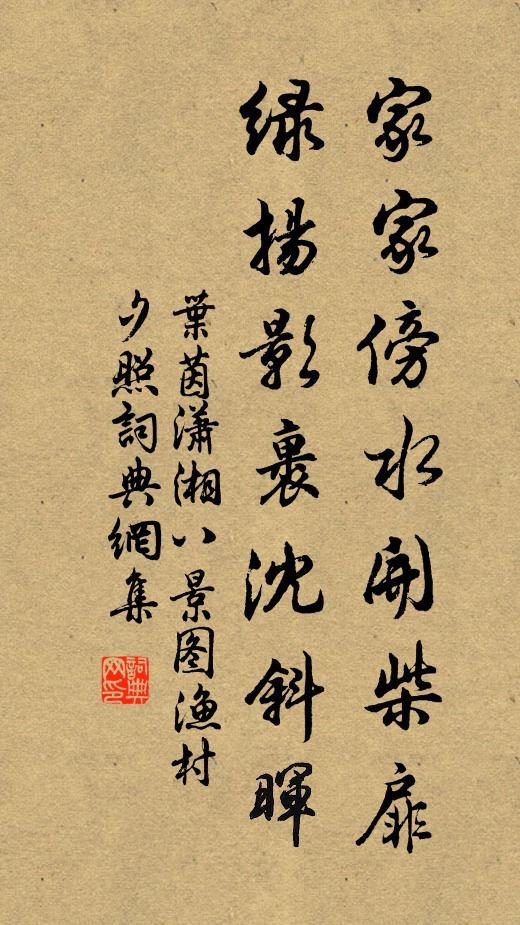 家家傍水開柴扉
緑揚影裹沈斜暉
葉茵瀟湘八景图漁村
夕照詞典網集
詞典
网印